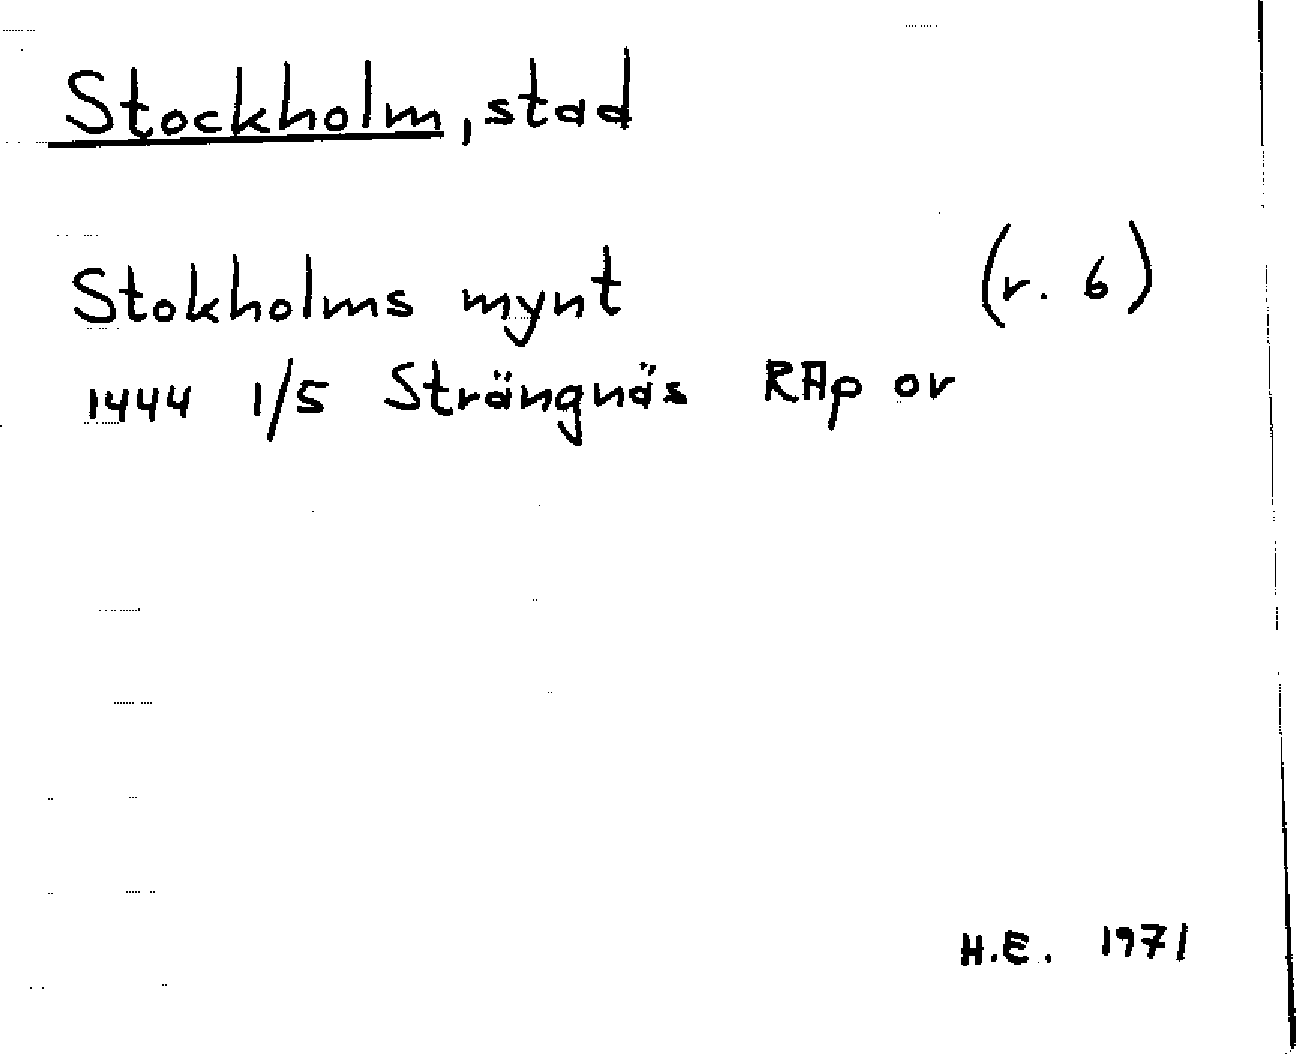 Stockholm, stad
Stokholms mynt (r. 6)
1444 1/5 Strängnäs RAp or
H.E. 1971